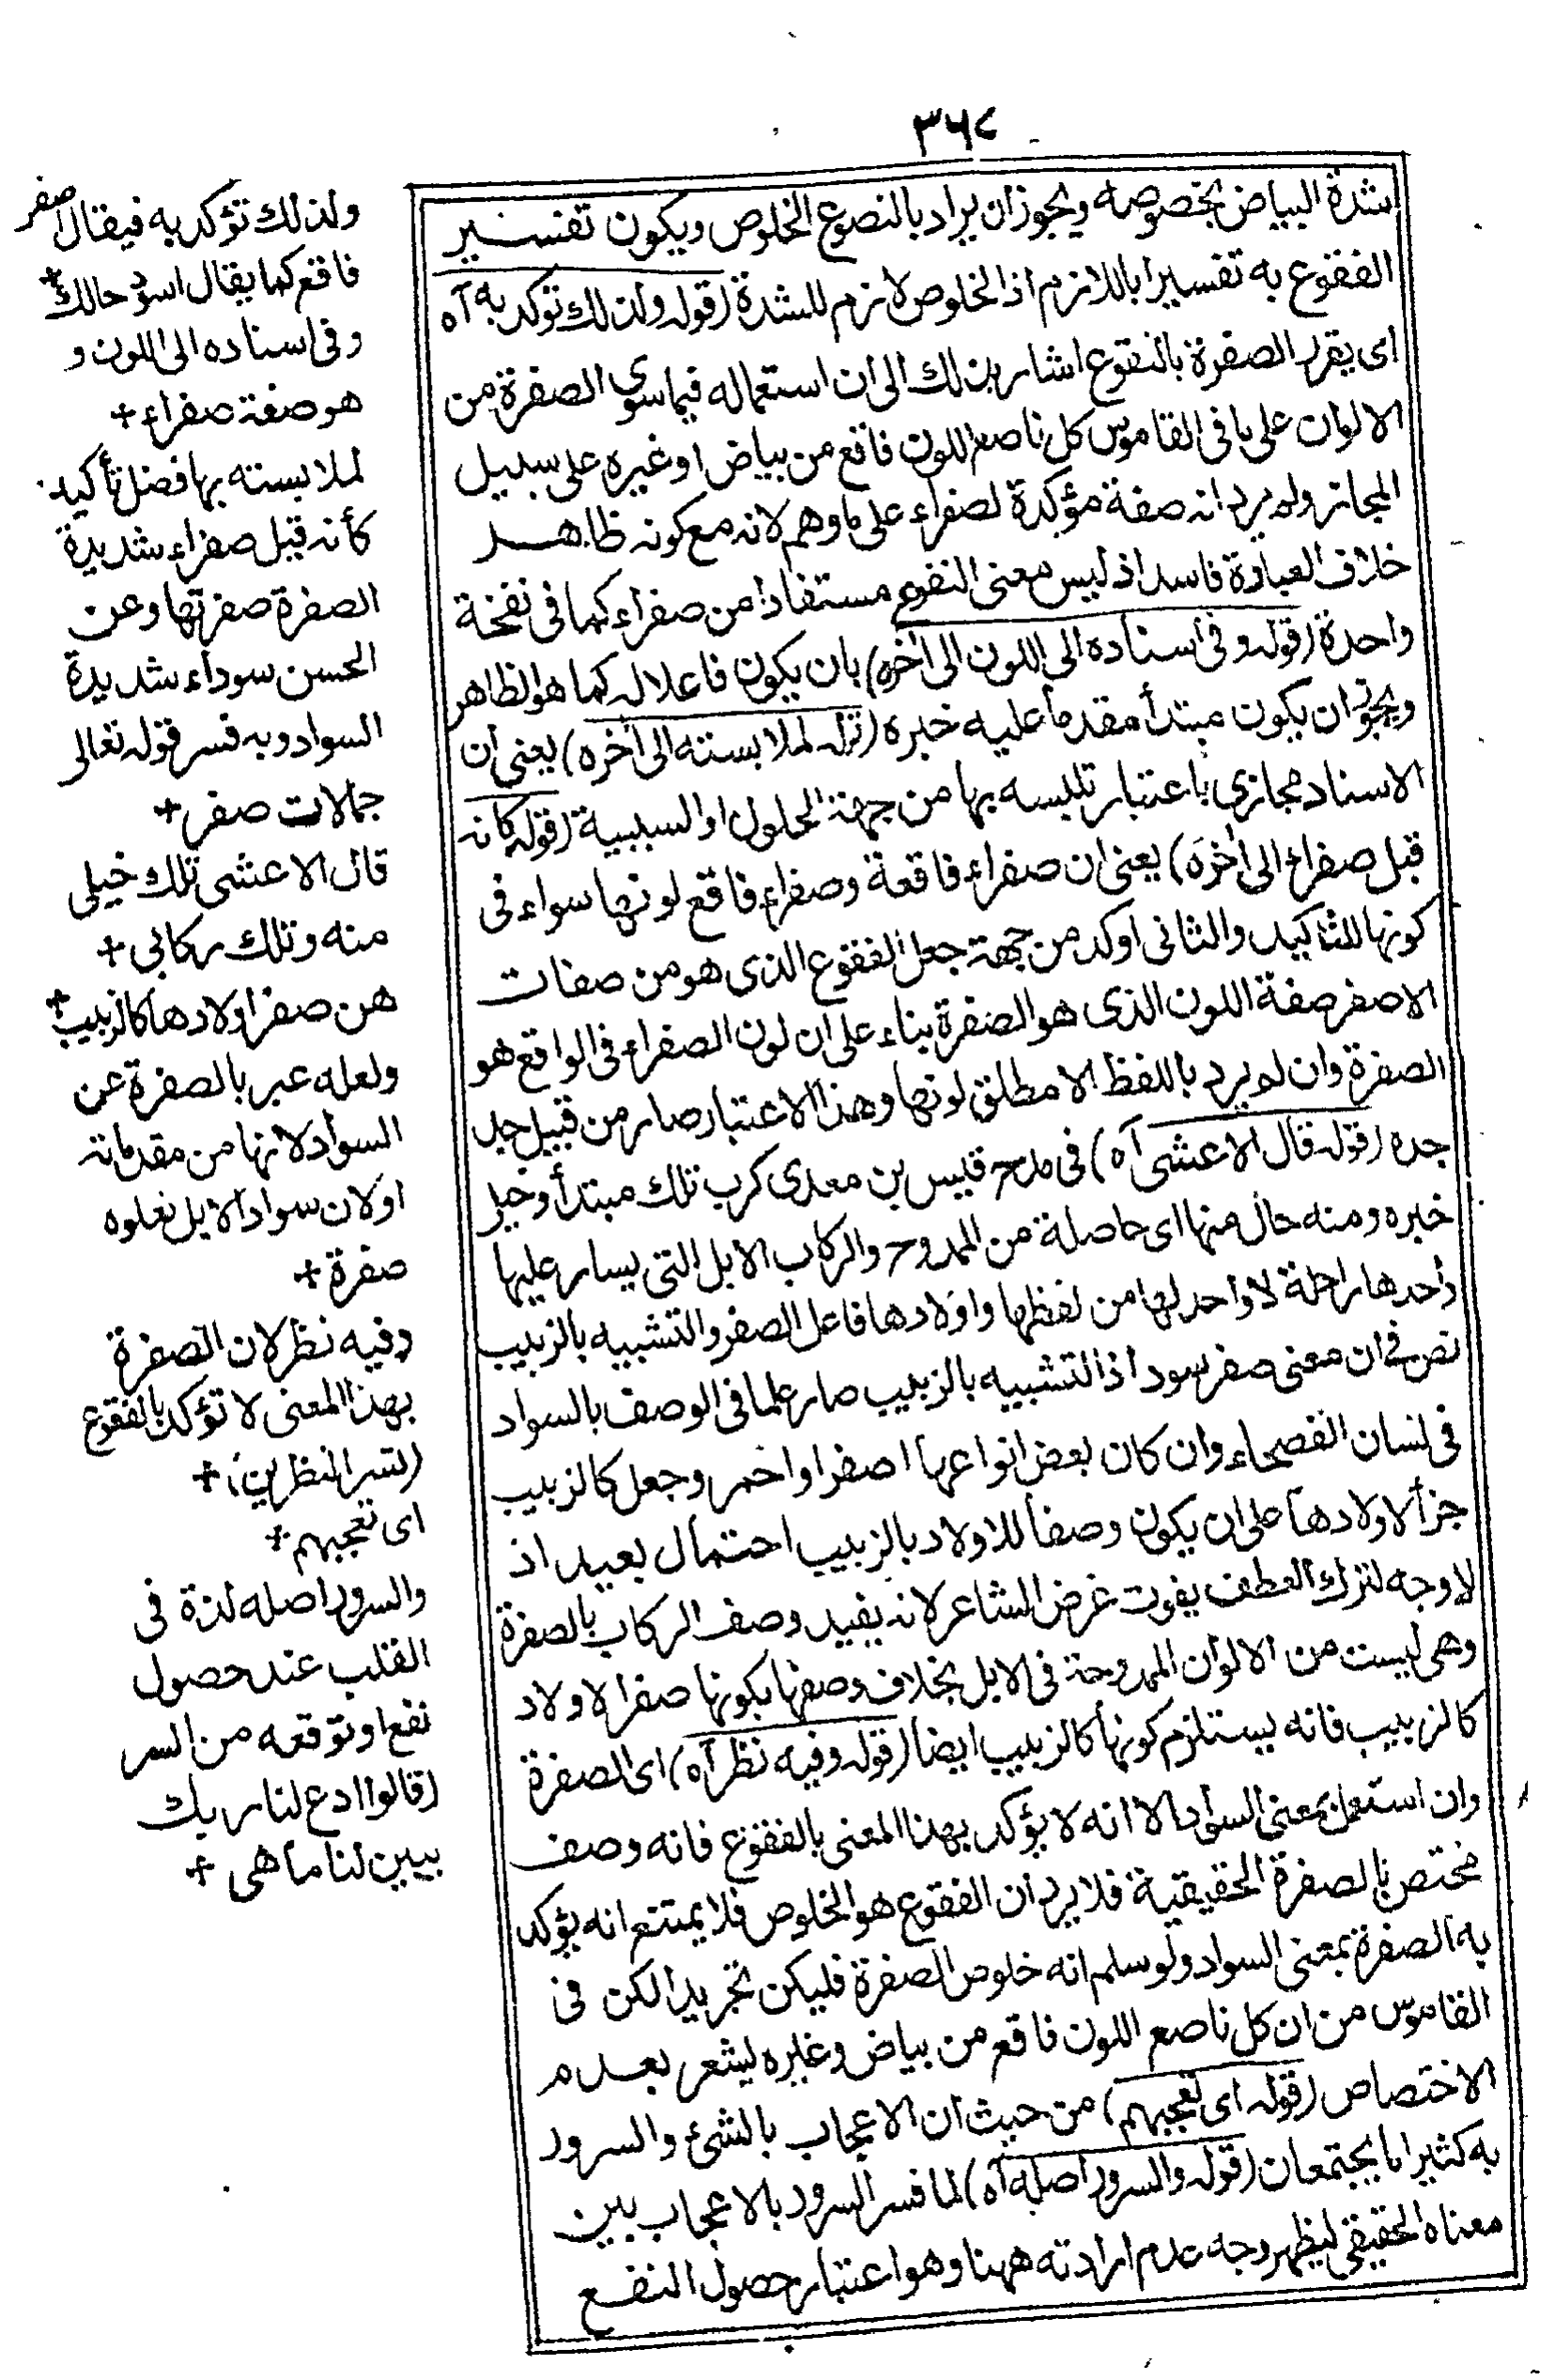 ٣٦٧
شدة البياض بخصوصه ويجوز ان يراد بالنصوع الخلوص ويكون تفسير
الفقوع به تفسيرا باللازم اذ الخلوص لازم للشدة (قوله ولذلك تؤكد به آه
اى يقرر الصفرة بالفقوع اشار بذلك الى ان استعماله فيما سوى الصفرة من
الالوان على ما فى القاموس كل ناصع اللون فاقع من بياض او غيره على سبيل
المجاز ولم يرد انه صفة مؤكدة لصفراء على ما وهم لانه مع كونه ظاهر
خلاف العبارة فاسد اذ ليس معنى الفقوع مستفادا من صفراء كما فى نفخة
واحدة (قوله وفى اسناده الى اللون الى آخره) بان يكون فاعلا له كما هو الظاهر
ويجوز ان يكون مبتدأ مقدما عليه خبره (قوله لملابسته الى آخره) يعنى ان
الاسناد مجازى باعتبار تلبسه بها من جهة الحلول او السببية (قوله كانه
قيل صفراء الى آخره) يعنى ان صفراء فاقعة وصفراء فاقع لونها سواء فى
كونها للتاكيد والثانى اوكد من جهة جعل الفقوع الذى هو من صفات
الاصفر صفة اللون الذى هو الصفرة بناء على ان لون الصفراء فى الواقع هو
الصفرة وان لم يرد باللفظ الا مطلق لونها وهذا الاعتبار صار من قبيل جد
جده (قوله قال الاعشى آه) فى مدح قيس بن معدى كرب تلك مبتدأ وخيل
خبره ومنه حال منها اى حاصلة من الممدوح والركاب الابل التى يسار عليها
واحدها راحلة لا واحد لها من لفظها واولادها فاعل الصفر والتشبيه بالزبيب
نص فى ان معنى صفر سود اذ التشبيه بالزبيب صار علما فى الوصف بالسواد
فى لسان الفصحاء وان كان بعض انواعها اصفر او احمر وجعل كالزبيب
جزأ لاولادها على ان يكون وصفا للاولاد بالزبيب احتمال بعيد اذ
لا وجه لترك العطف يفوت غرض الشاعر لانه يفيد وصف الركاب بالصفرة
وهى ليست من الالوان الممدوحة فى الابل بخلاف وصفها بكونها صفر الاولاد
كالزبيب فانه يستلزم كونها كالزبيب ايضا (قوله وفيه نظر آه) اى الصفرة
وان استعمل بمعنى السواد الا انه لا يؤكد بهذا المعنى بالفقوع فانه وصف
مختص بالصفرة الحقيقية فلا يرد ان الفقوع هو الخلوص فلا يمتنع انه يؤكد
به الصفرة بمعنى السواد ولو سلم انه خلوص الصفرة فليكن تجريدا لكن فى
القاموس من ان كل ناصع اللون فاقع من بياض وغيره ليشعر بعدم
الاختصاص (قوله اى تعجبهم) من حيث ان الاعجاب بالشئ والسرور
به كثيرا ما يجتمعان (قوله والسرور اصله آه) لما فسر السرور بالاعجاب بين
معناه الحقيقى ليظهر وجه عدم ارادته ههنا وهو اعتبار حصول النفع
ولذلك تؤكد به فيقال اصفر
فاقع كما يقال اسود حالك +
وفى اسناده الى اللون و
هو صفة صفراء +
لملابسته بها فضل تأكيد
كأنه قيل صفراء شديدة
الصفرة صفرتها وعن
الحسن سوداء شديدة
السواد وبه فسر قوله تعالى
جمالات صفر +
قال الاعشى تلك خيلى
منه وتلك ركابى +
هن صفر اولادها كالزبيب +
ولعله عبر بالصفرة عن
السواد لانها من مقدماته
او لان سواد الابل تعلوه
صفرة +
وفيه نظر لان الصفرة
بهذا المعنى لا تؤكد بالفقوع
(تسر الناظرين) +
اى تعجبهم +
والسرور اصله لذة فى
القلب عند حصول
نفع او توقعه من السر
(قالوا ادع لنا ربك
يبين لنا ما هى +